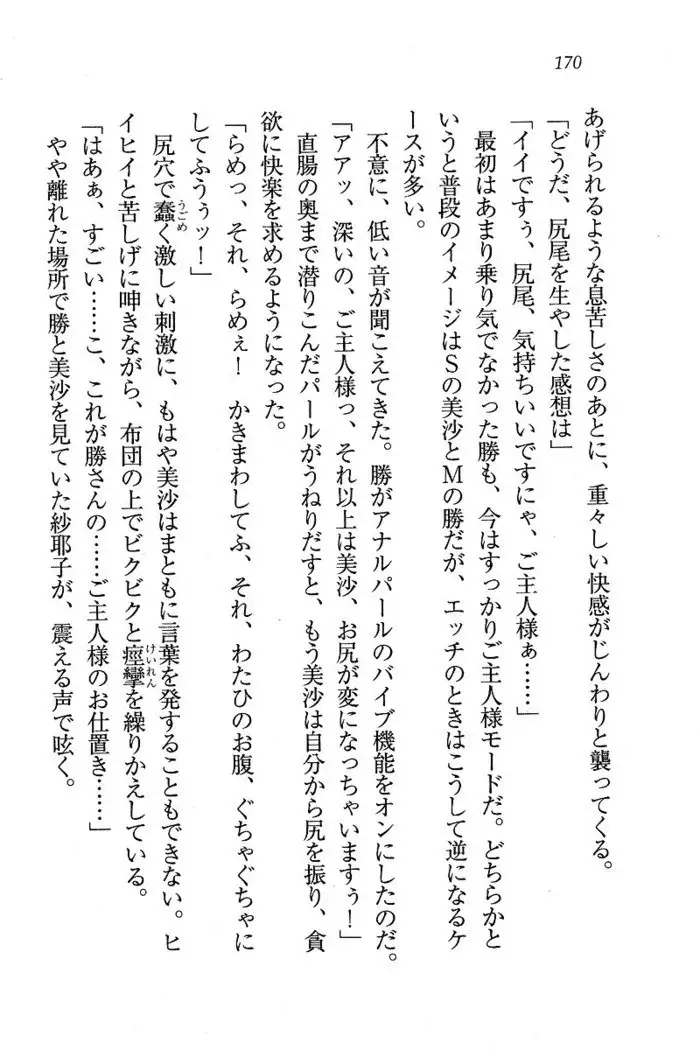 170
あげられるような息苦しさのあとに、重々しい快感がじんわりと襲ってくる。
「どうだ、尻尾を生やした感想は」
「イイですぅ、尻尾、気持ちいいですにゃ、ご主人様ぁ……」
最初はあまり乗り気でなかった勝も、今はすっかりご主人様モードだ。どちらかと
いうと普段のイメージはSの美沙とMの勝だが、エッチのときはこうして逆になるケ
ースが多い。
不意に、低い音が聞こえてきた。勝がアナルパールのバイブ機能をオンにしたのだ。
「アアッ、深いの、ご主人様っ、それ以上は美沙、お尻が変になっちゃいますぅ！」
直腸の奥まで潜りこんだパールがうねりだすと、もう美沙は自分から尻を振り、貪
欲に快楽を求めるようになった。
「らめっ、それ、らめぇ！　かきまわしてふ、それ、わたひのお腹、ぐちゃぐちゃに
してふうぅッ！」
尻穴で蠢く激しい刺激に、もはや美沙はまともに言葉を発することもできない。ヒ
イヒイと苦しげに呻きながら、布団の上でビクビクと痙攣を繰りかえしている。
「はあぁ、すごい……こ、これが勝さんの……ご主人様のお仕置き……」
やや離れた場所で勝と美沙を見ていた紗耶子が、震える声で呟く。